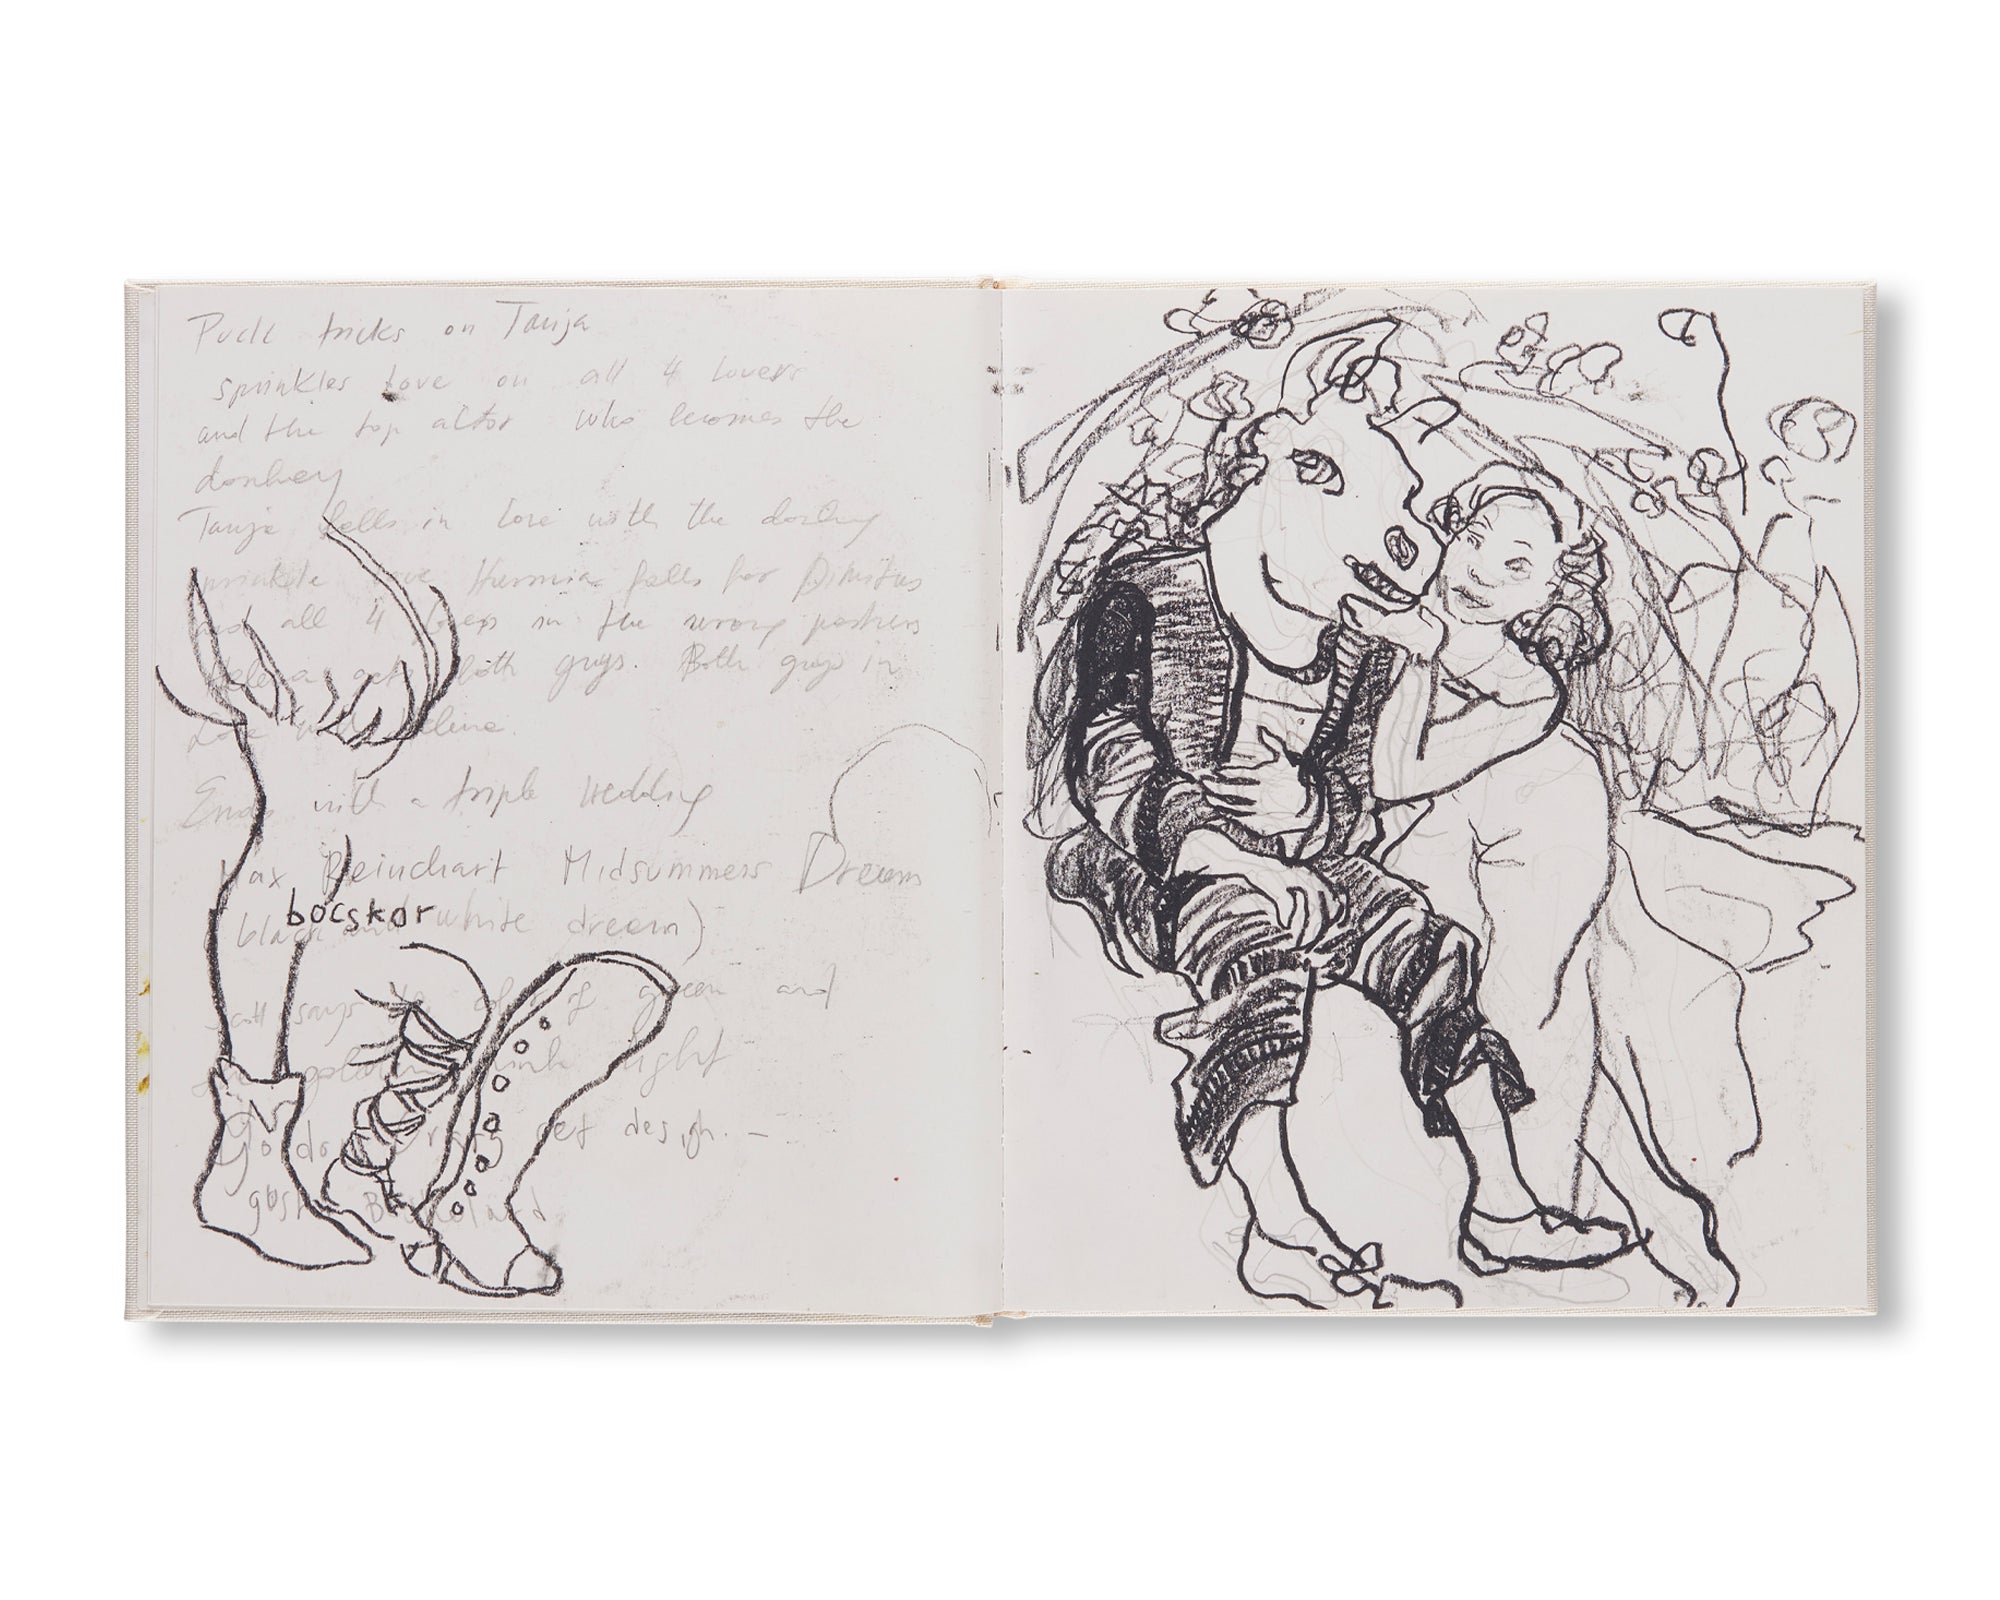 Puck tricks on Tanja
sprinkles love on all 4 lovers
and the top actor who becomes the
donkey
Tanja falls in love with the donkey
love Hermia falls for Dimitus
and all 4 in the wrong partners
Helena gets both guys. Both guys in
love
Ends with a triple wedding
Max Reinchart Midsummers Dream
bocskor
black and white dream)
says of green and
pink light
set design. -